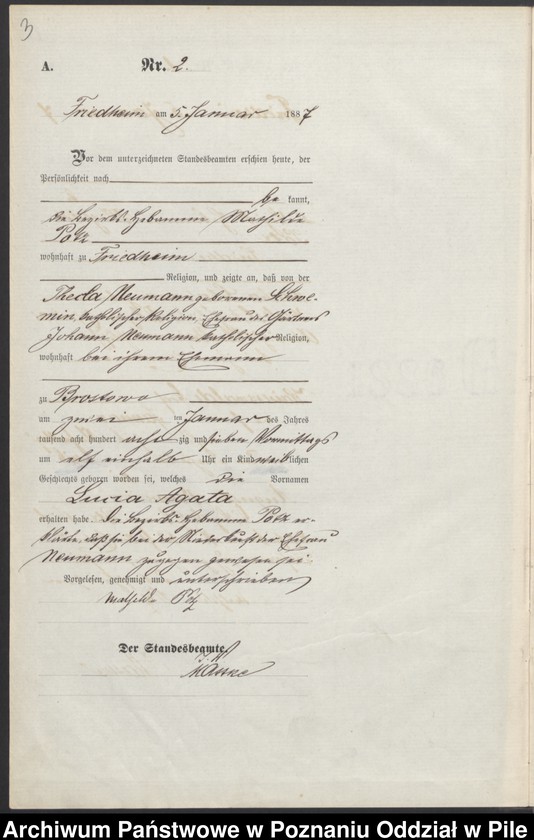 3
A. Nr. 2.
Friedheim am 5. Januar 1887
Vor dem unterzeichneten Standesbeamten erschien heute, der
Persönlichkeit nach
be kannt,
die Bezirks-Hebamme Mathilde
Potz
wohnhaft zu Friedheim
Religion, und zeigte an, daß von der
Thecla Neumann geborenen Schwe-
min, katholischer Religion, Ehefrau des Gärtners
Johann Neumann katholischer Religion,
wohnhaft bei ihrem Ehemann
zu Brostowo
am zwei ten Januar des Jahres
tausend acht hundert acht zig und sieben Vormittags
um elf einhalb Uhr ein Kind weiblichen
Geschlechts geboren worden sei, welches die Vornamen
Lucia Agata
erhalten habe. Die Bezirks-Hebamme Potz er-
klärte, daß sie bei der Niederkunft der Ehefrau
Neumann zugegen gewesen sei.
Vorgelesen, genehmigt und unterschrieben
Potz
Der Standesbeamte.
Archiwum Państwowe w Poznaniu Oddział w Pile